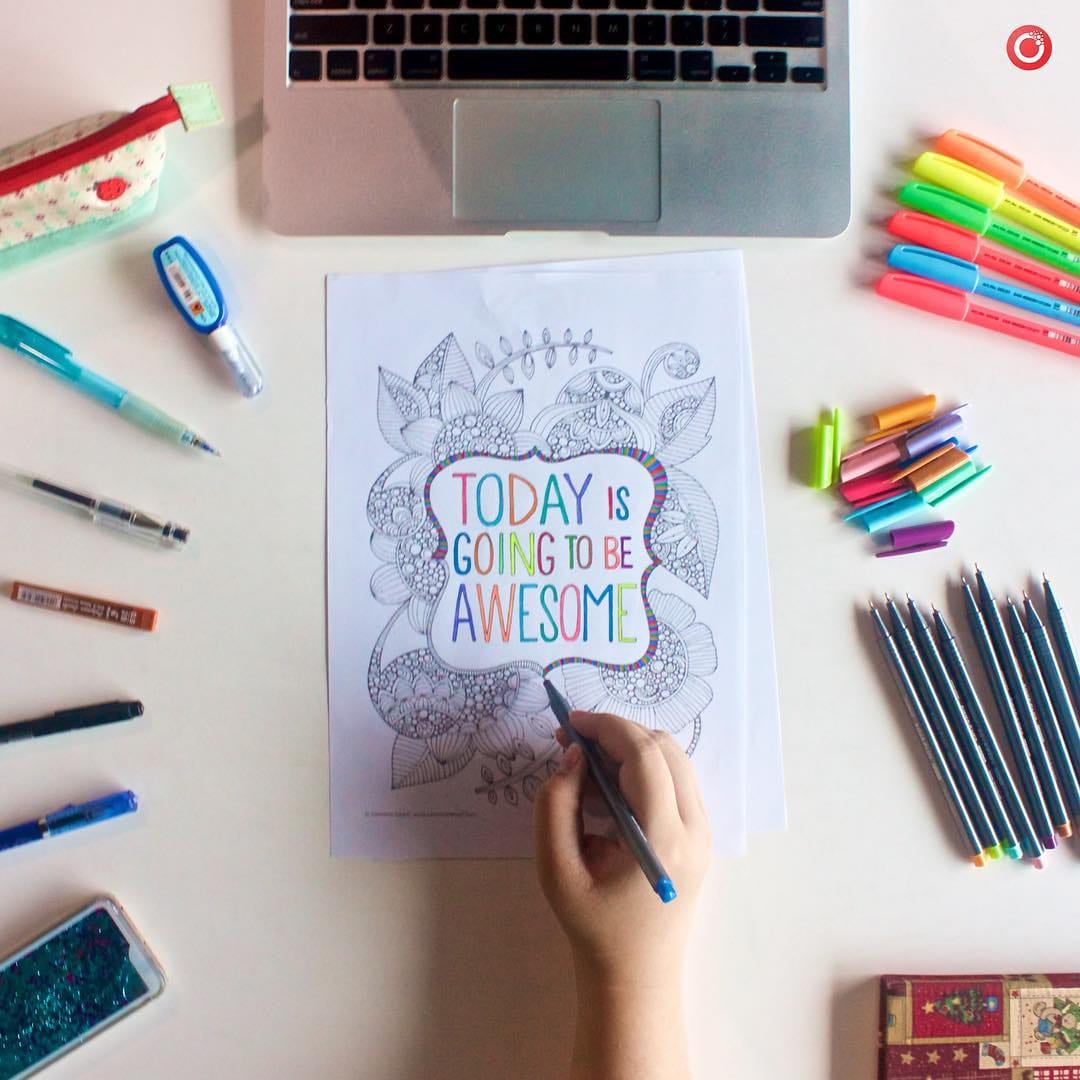 TODAY IS
GOING TO BE
AWESOME